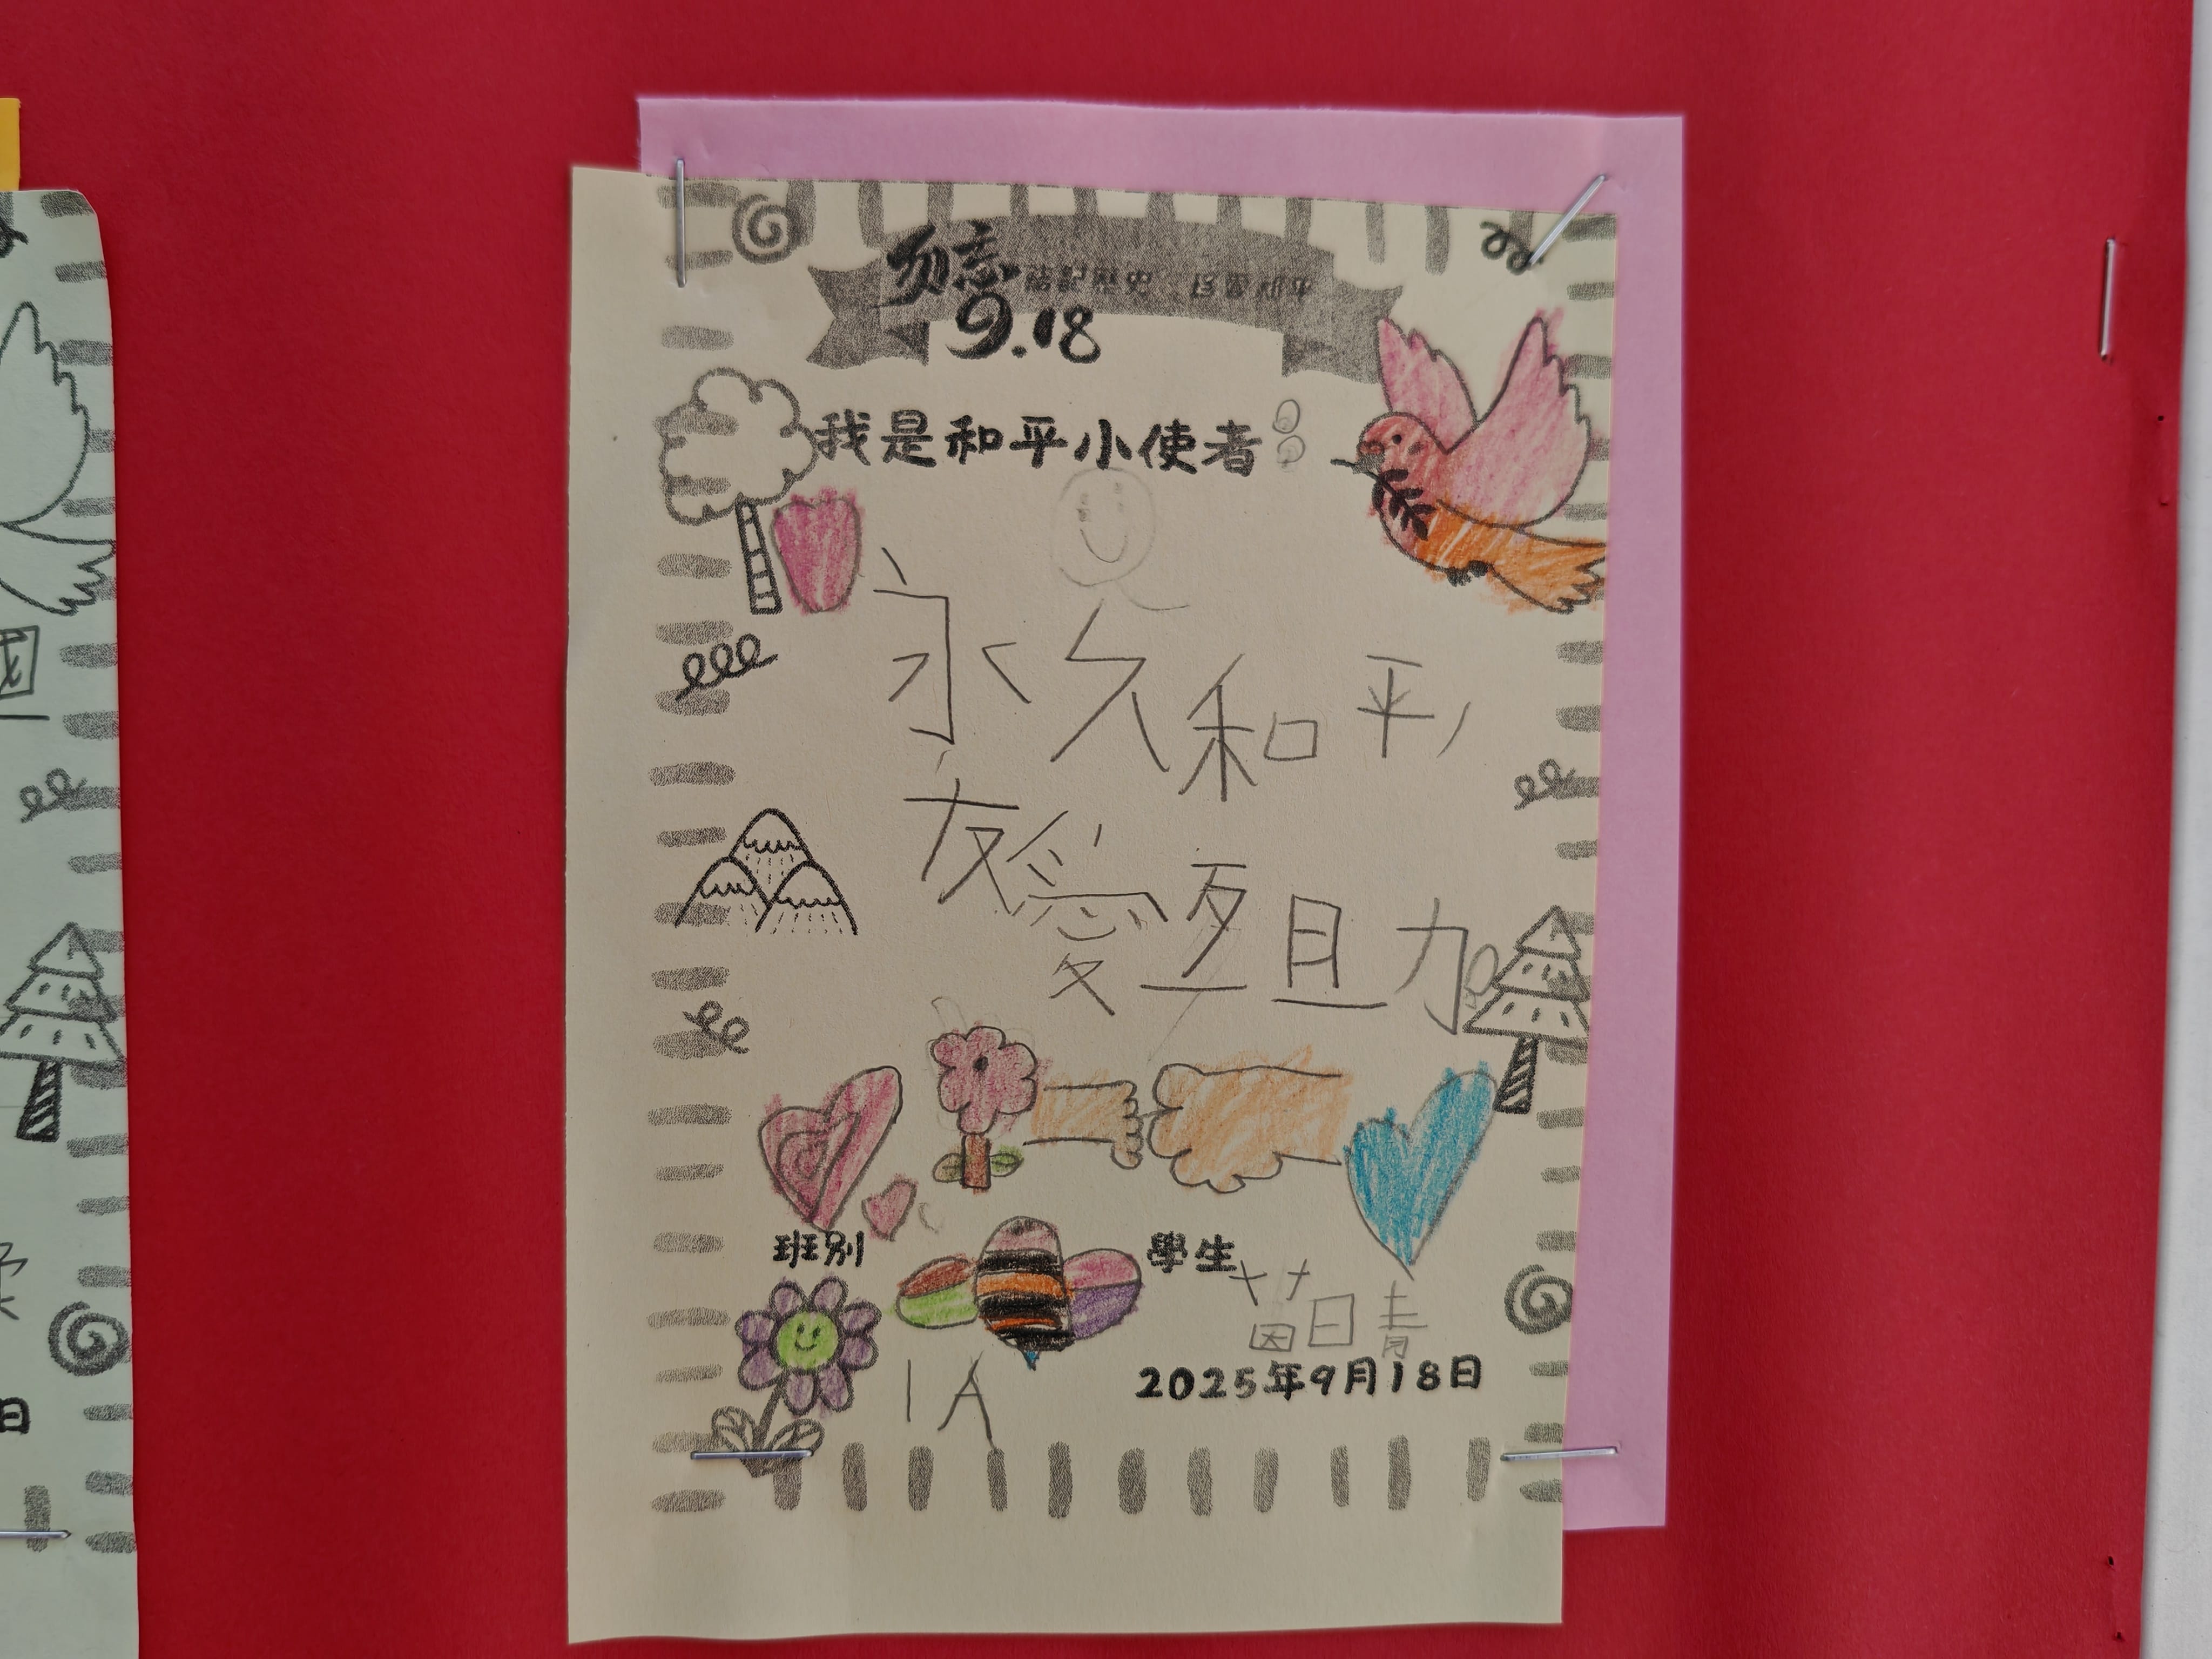 勿忘
9.18
銘記歷史
我是和平小使者:
永久和平,
友愛互助。
班別
1A
學生
茵晴
2025年9月18日